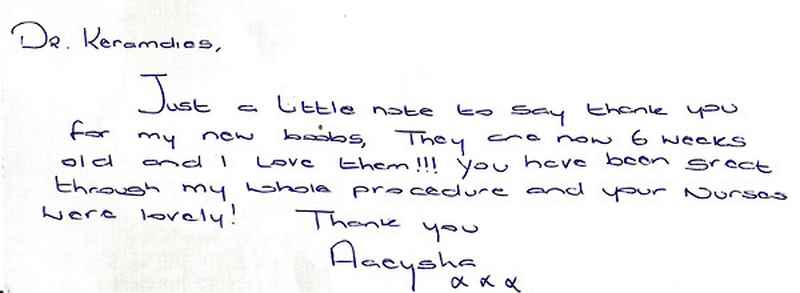 Dr. Keramidas,
Just a little note to say thank you
for my new boobs, They are now 6 weeks
old and I love them!!! You have been great
through my whole procedure and your Nurses
were lovely! Thank you
Aaeysha
x x x